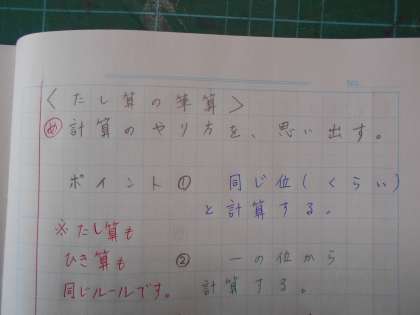 <たし算の筆算>
め 計算のやり方を、思い出す。
ポイント① 同じ位(くらい)
と計算する。
※たし算も
ひき算も ② 一の位から
同じルールです。 計算する。